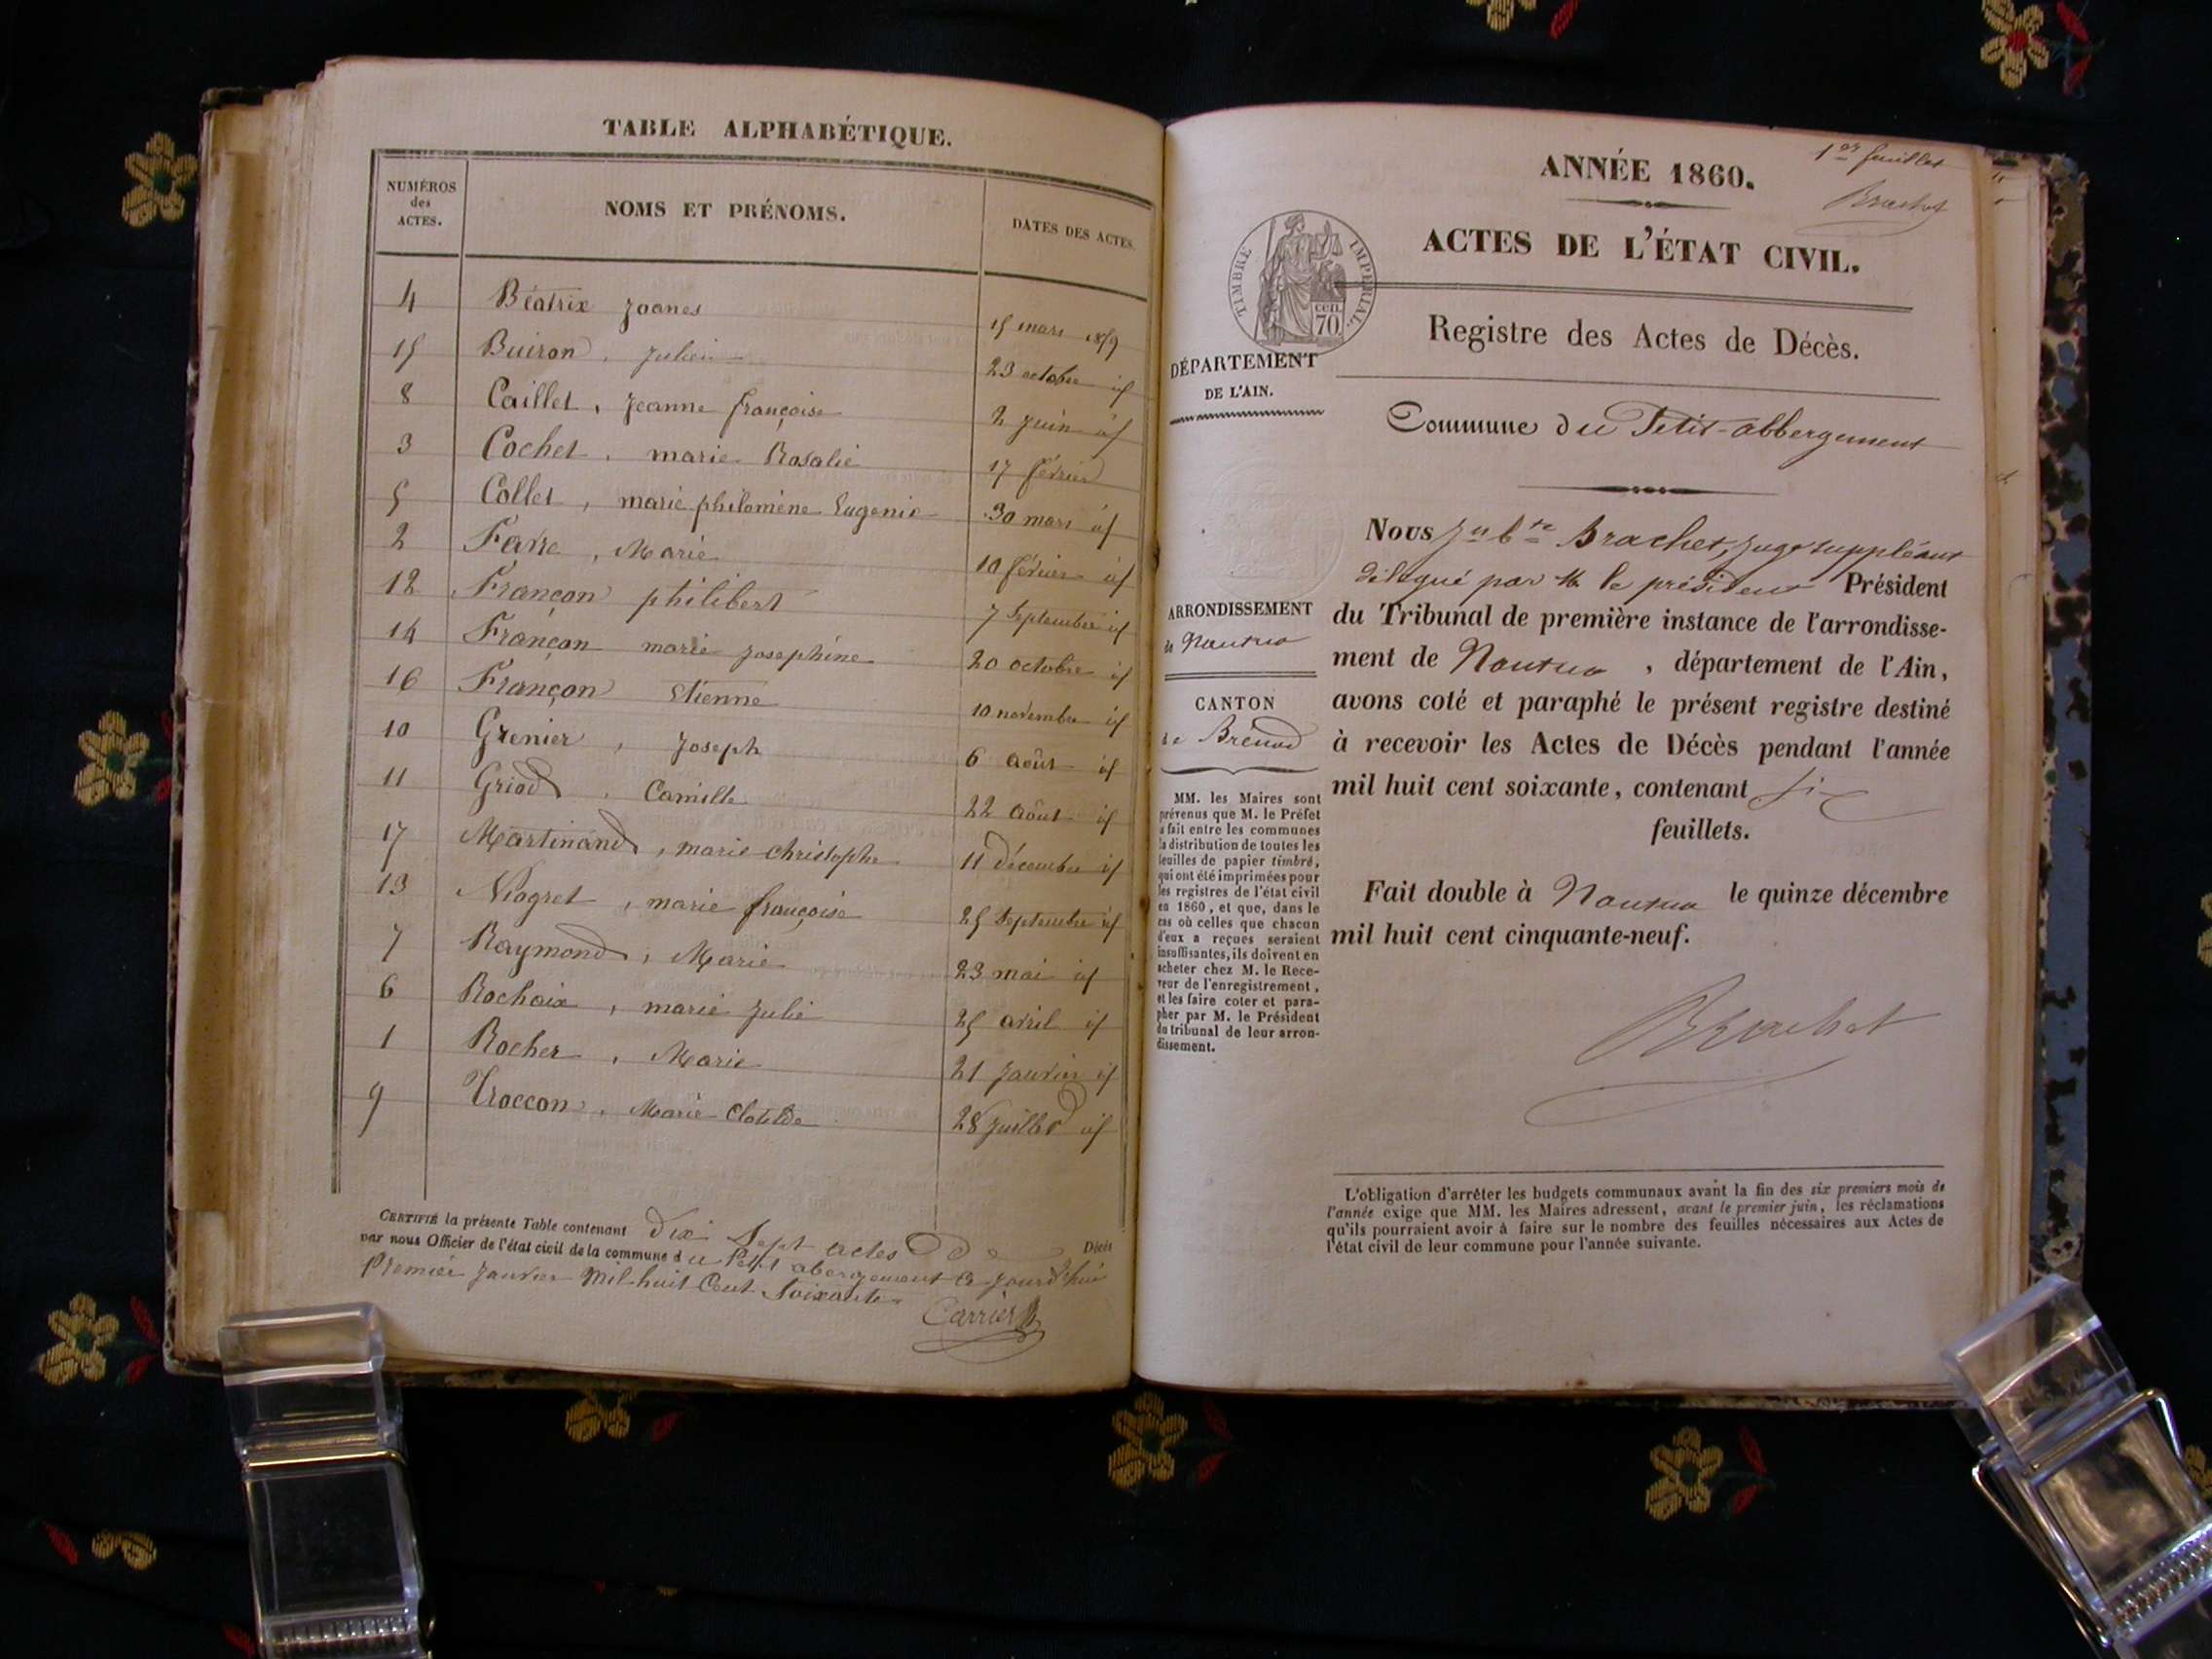 TABLE ALPHABÉTIQUE.
NUMÉROS des ACTES. NOMS ET PRÉNOMS. DATES DES ACTES.
4 Béatrix Joanes 15 mars 1859
15 Buiron, Julien 23 octobre id
8 Caillet, Jeanne françoise 2 Juin id
3 Cochet, marie Rosalie 17 février
5 Collet, marie philomène Eugenie 30 mars id
2 Favre, Marie 10 février id
12 Françon philibert 7 Septembre id
14 Françon marie Josephine 20 octobre id
16 Françon Etienne 10 novembre id
10 Grenier, Joseph 6 août id
11 Griod, Camille 22 août id
17 Martinand, marie christophe 11 décembre id
13 Niogret, marie françoise 25 Septembre id
7 Raymond, Marie 23 mai id
6 Rochaix, marie Julie 25 avril id
1 Rocher, Marie 21 Janvier id
9 Troccon, Marie Clotilde 28 Juillet id
CERTIFIÉ la présente Table contenant dix Sept actes De Décès
par nous Officier de l'état civil de la commune du Petit abergement Ce jourd'hui
Premier Janvier Mil huit Cent Soixante
Carrier
1er feuillet
Brachet
ANNÉE 1860.
ACTES DE L'ÉTAT CIVIL.
TIMBRE IMPERIAL.
70 cen.
Registre des Actes de Décès.
DÉPARTEMENT
DE L'AIN.
Commune du Petit-abbergement
ARRONDISSEMENT
de Nantua
CANTON
de Brénod
MM. les Maires sont
prévenus que M. le Préfet
a fait entre les communes
la distribution de toutes les
feuilles de papier timbré,
qui ont été imprimées pour
les registres de l'état civil
en 1860, et que, dans le
cas où celles que chacun
d'eux a reçues seraient
insuffisantes, ils doivent en
acheter chez M. le Rece-
veur de l'enregistrement,
et les faire coter et para-
pher par M. le Président
du tribunal de leur arron-
dissement.
Nous Jn Bte Brachet, Juge suppléant
délégué par M. le président Président
du Tribunal de première instance de l'arrondisse-
ment de Nantua, département de l'Ain,
avons coté et paraphé le présent registre destiné
à recevoir les Actes de Décès pendant l'année
mil huit cent soixante, contenant six
feuillets.
Fait double à Nantua le quinze décembre
mil huit cent cinquante-neuf.
Brachet
L'obligation d'arrêter les budgets communaux avant la fin des six premiers mois de
l'année exige que MM. les Maires adressent, avant le premier juin, les réclamations
qu'ils pourraient avoir à faire sur le nombre des feuilles nécessaires aux Actes de
l'état civil de leur commune pour l'année suivante.